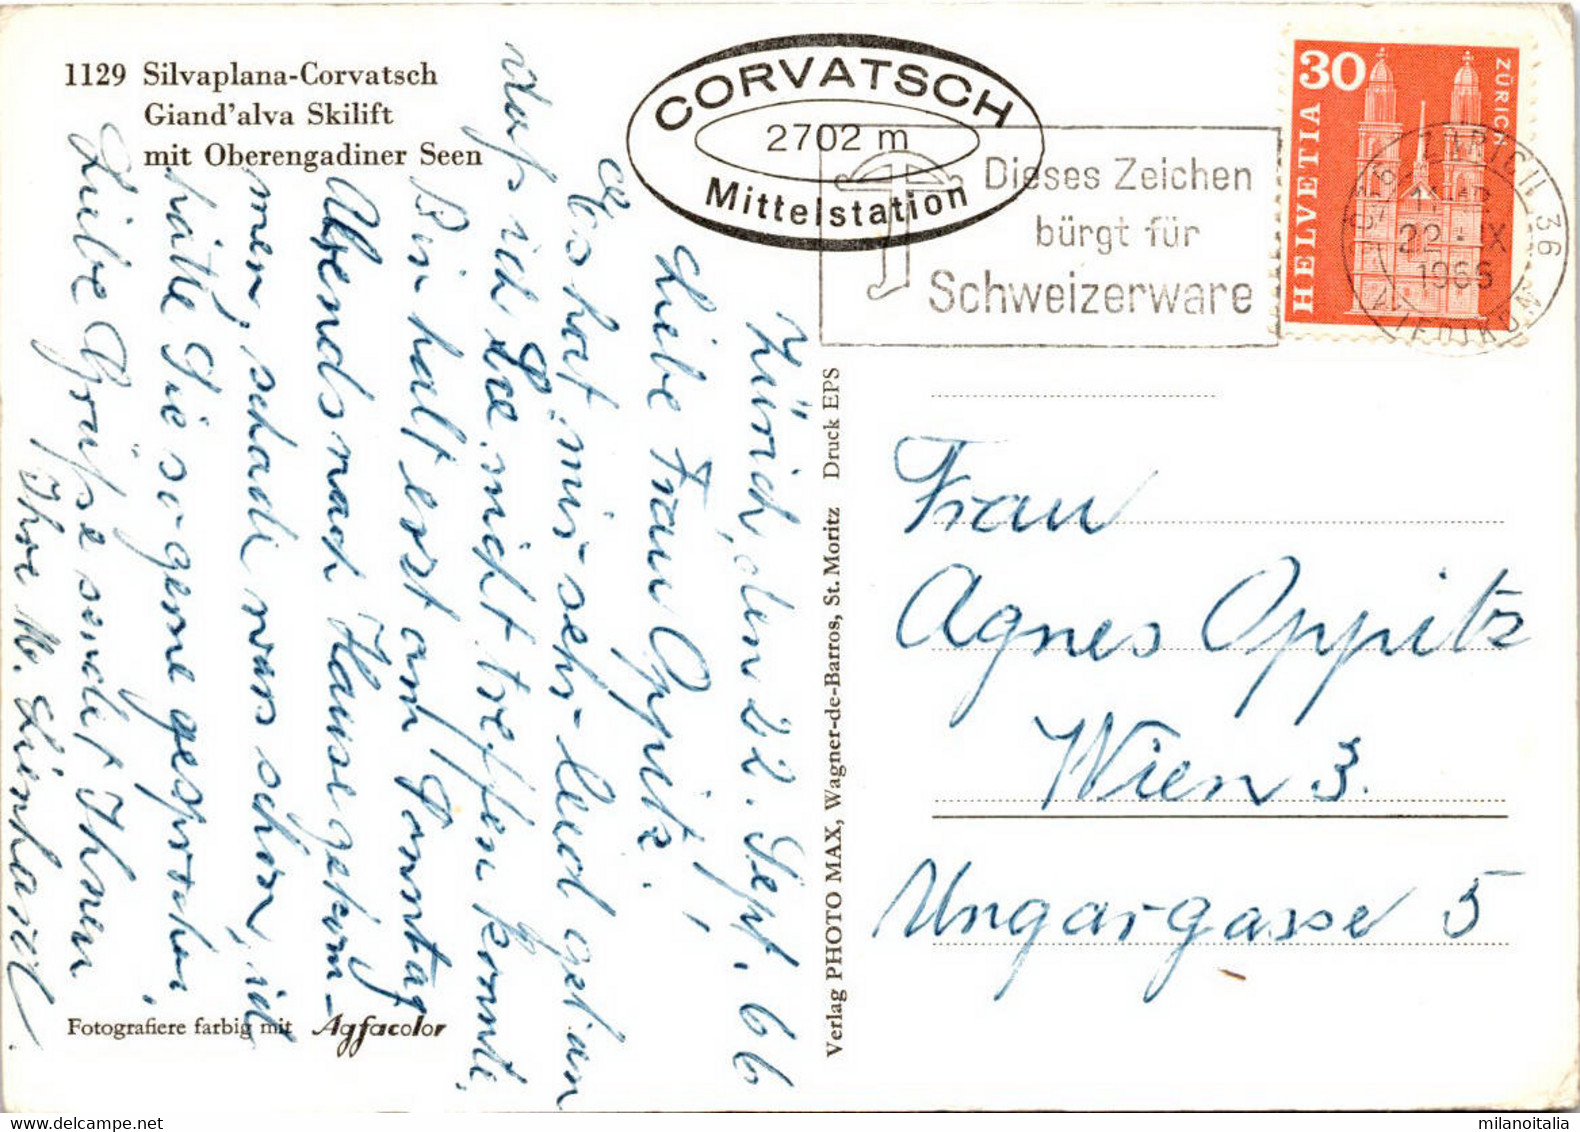 1129 Silvaplana-Corvatsch
Giand'alva Skilift
mit Oberengadiner Seen
CORVATSCH
2702 m
Mittelstation
Dieses Zeichen
bürgt für
Schweizerware
30
HELVETIA
ZÜRICH
8036 ZÜRICH 36
22.-IX
1966
WIEDIKON
Zürich, den 22. Sept. 66
Liebe Frau Oppitz!
Es hat mir sehr leid getan
dass ich Sie nicht treffen konnte,
Bin halt erst am Sonntag
Abends nach Hause gekom-
men, schade wars schon, ich
hätte Sie so gerne gesprochen,
Liebe Grüsse sendet Ihnen
Ihre M. Lienhard.
Verlag PHOTO MAX, Wagner-de-Barros, St. Moritz Druck EPS
Frau
Agnes Oppitz
Wien 3.
Ungargasse 5
Fotografiere farbig mit Agfacolor
milanoitalia